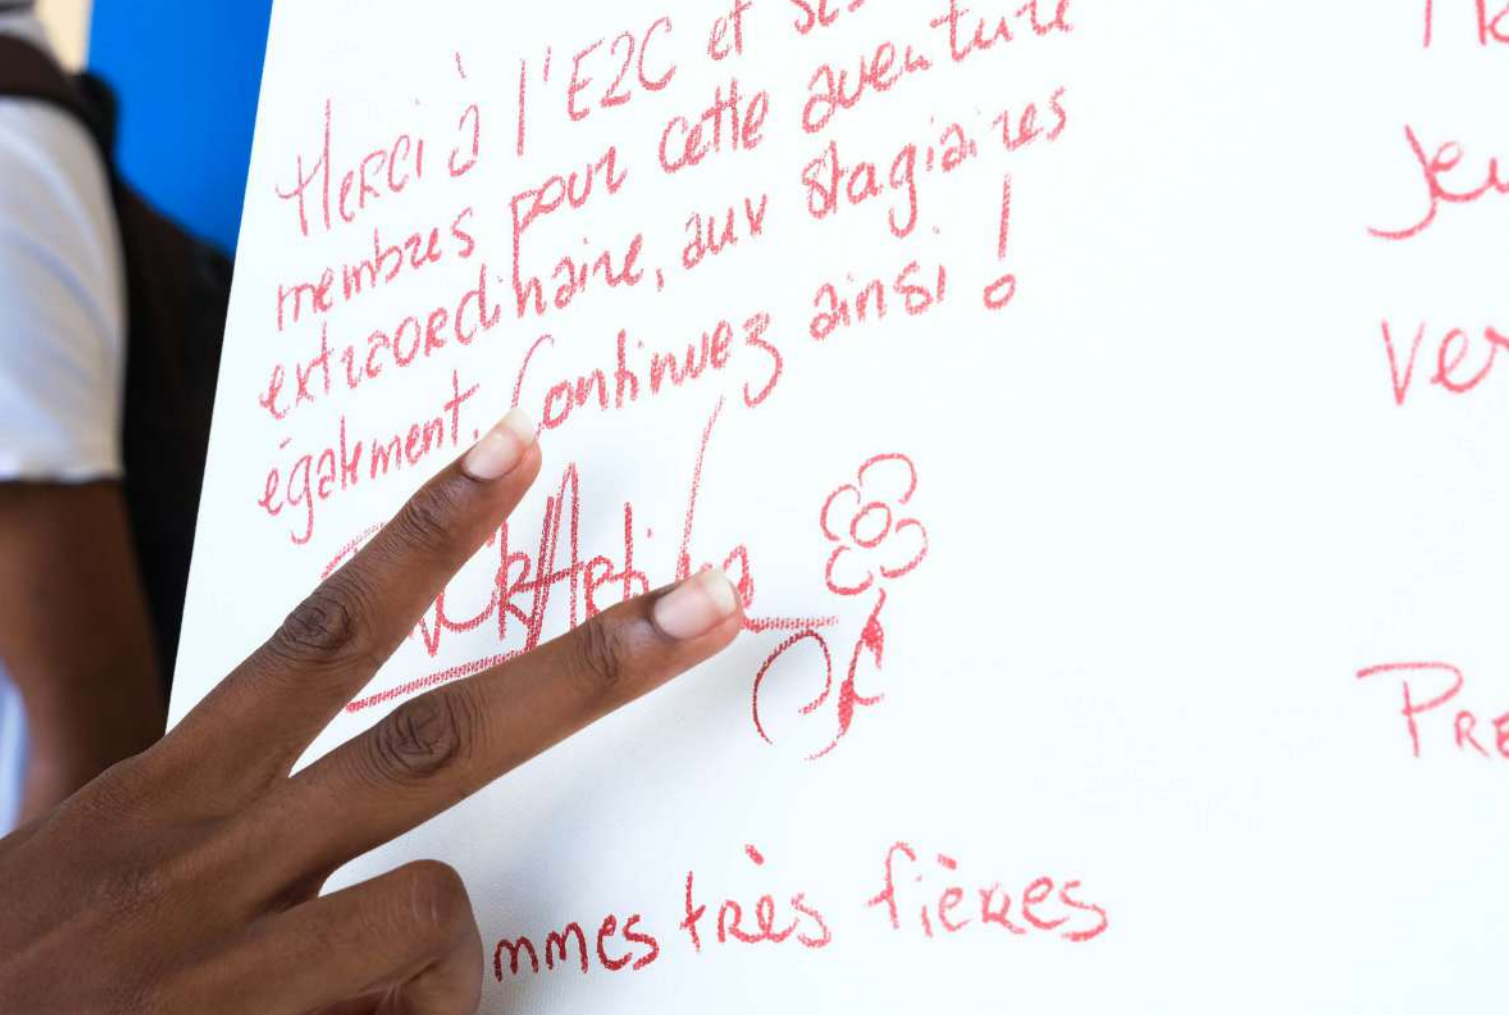 Merci à l'E2C et ses
membres pour cette aventure
extraordinaire, aux stagiaires
également. Continuez ainsi !
mmes très fières
Jeu
ver
PRE